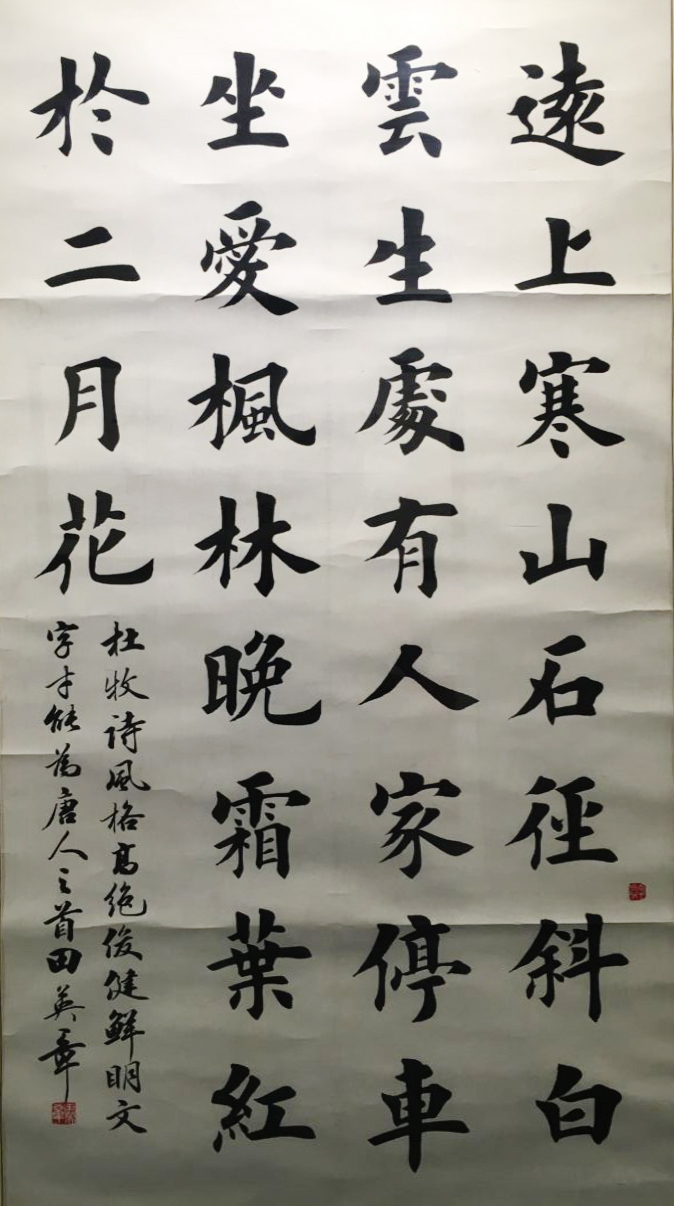 遠上寒山石徑斜白
雲生處有人家停車
坐愛楓林晚霜葉紅
於二月花
杜牧诗風格高绝俊健鲜明文
字才能為唐人之首田英章